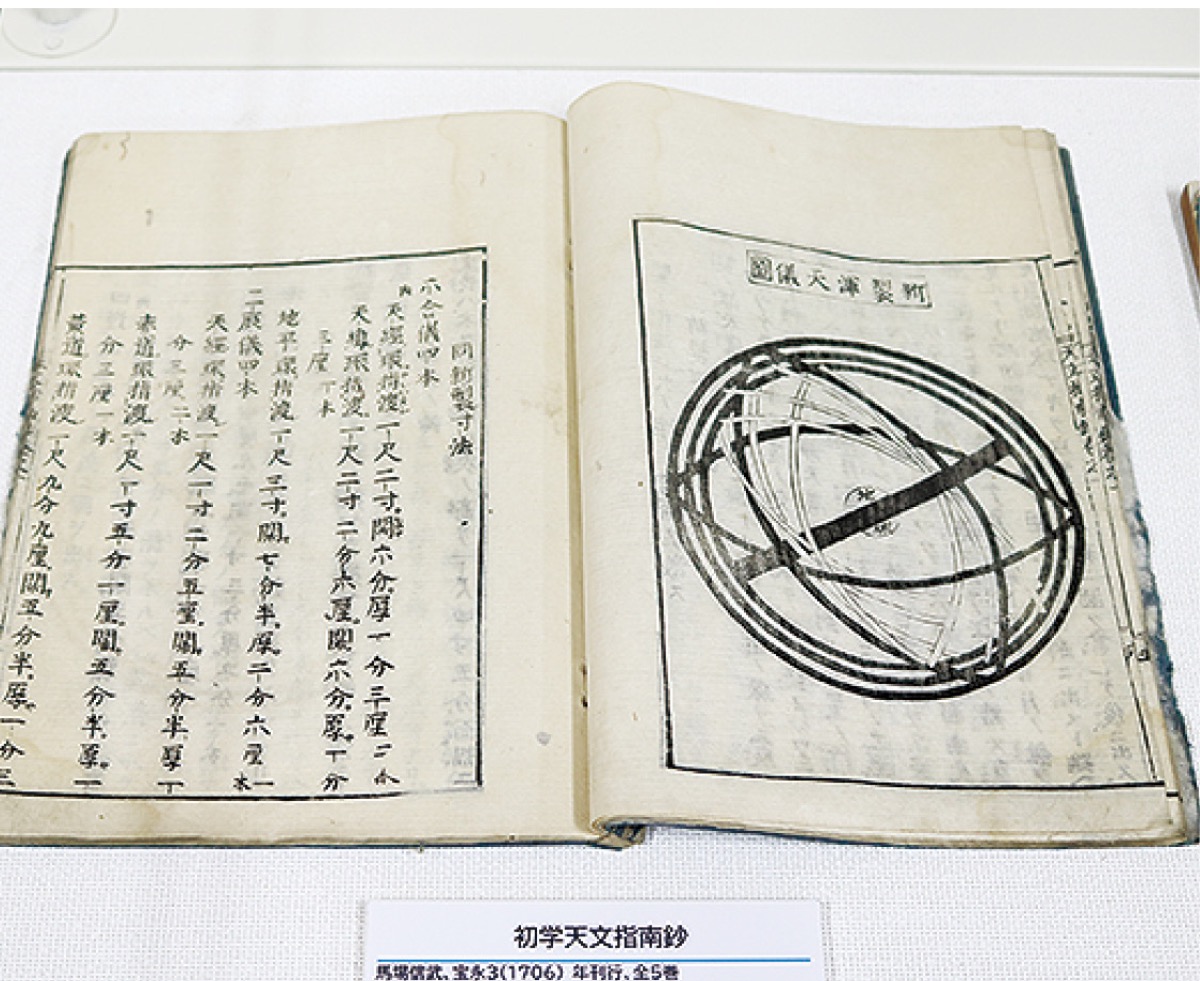 新製渾天儀圖
地
同新製寸法
六合儀四本
天經環指渡一尺二寸闊六分厚一分三厘二本
天緯環指渡一尺二寸二分六厘闊六分厚一分
三厘一本
地平環指渡一尺三寸闊七分半厚二分六厘一本
三辰儀四本
天經環指渡一尺一寸二分五厘闊五分半厚一
分三厘二本
赤道環指渡一尺一寸五分一厘闊五分半厚一
分三厘一本
黄道環指渡一尺九分九厘闊五分半厚一分三
初学天文指南鈔
馬場信武、宝永3(1706) 年刊行、全5巻